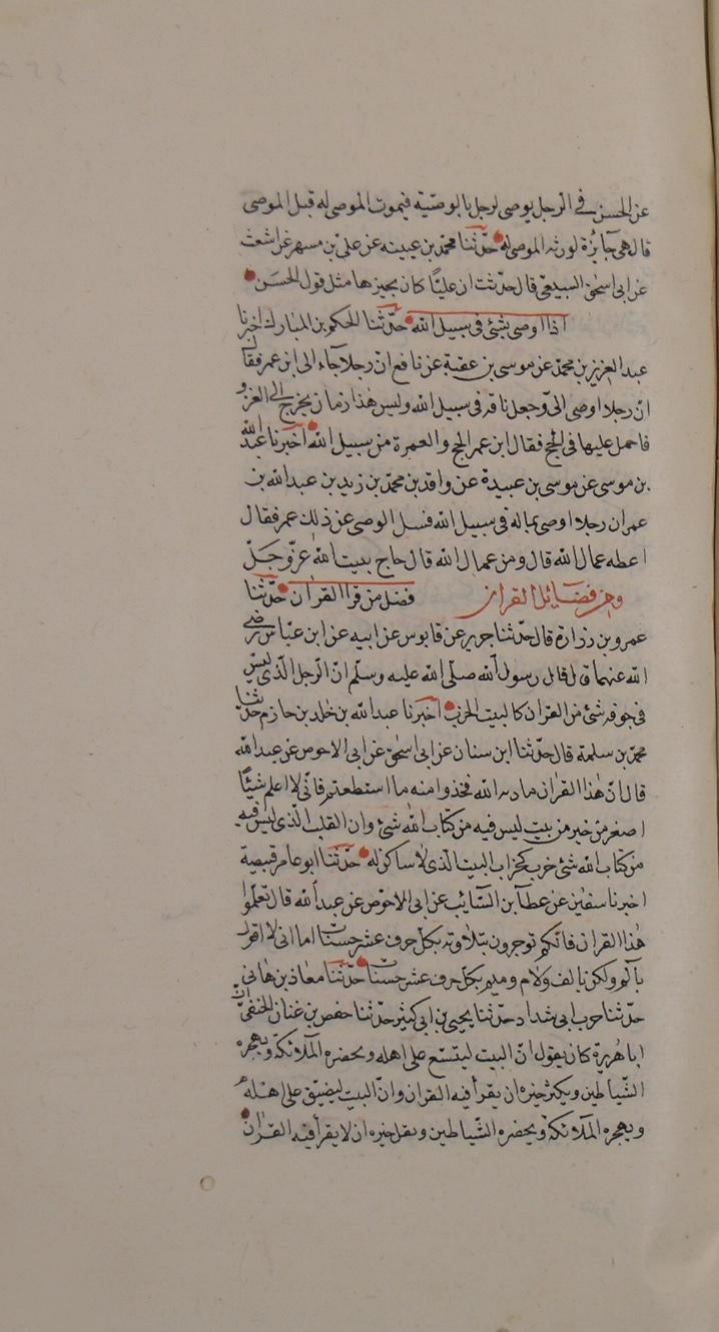 عن الحسن في الرجل يوصي لرجل بالوصية فيموت الموصى له قبل الموصي
قال هي جائزة لورثة الموصى له حدثنا محمد بن عيينه عن علي بن مسهر عن اشعث
عن ابي اسحق السبيعي قال حدثت ان عليّا كان يجيزها مثل قول الحسن
اذا اوصى بشئ في سبيل الله حدثنا الحكم بن المبارك اخبرنا
عبد العزيز بن محمد عن موسى بن عقبة عن نافع انّ رجلا جآء الى ابن عمر فقال
انّ رجلا اوصى اليّ وجعل ناقة في سبيل الله وليس هذا زمان يخرج الى الغزو
فاحمل عليها في الحج فقال ابن عمر الحج والعمرة من سبيل الله اخبرنا عبد الله
بن موسى عن موسى بن عبيدة عن واقد بن محمد بن زيد بن عبد الله بن
عمر ان رجلا اوصى بماله في سبيل الله فسل الوصى عن ذلك عمر فقال
اعطه عمال الله قال ومن عمال الله قال حاج بيت الله عزّ وجلّ
ومن فضائل القران فضل من قرا القران حدثنا
عمرو بن زرارة قال حدثنا جرير عن قابوس عن ابيه عن ابن عبّاس رضي
الله عنهما قال قال رسول الله صلّى الله عليه وسلّم انّ الرجل الّذي ليس
في جوفه شئ من القران كالبيت الخرب اخبرنا عبد الله بن خلد بن حازم حدثنا
محمد بن سلمة قال حدثنا ابن سنان عن ابي اسحق عن ابي الاحوص عن عبد الله
قال انّ هذا القران مادبه الله فخذوا منه ما استطعتم فانّي لا اعلم شيئًا
اصغر من خير من بيت ليس فيه من كتاب الله شئ وان القلب الّذي ليس فيه
من كتاب الله شئ خرب كخراب البيت الّذي لا ساكن له حدثنا ابو عامر قبيصة
اخبرنا سفين عن عطآ بن السّائب عن ابي الاحوص عن عبد الله قال تعلّموا
هذا القران فانّكم توجرون بتلاوته بكل حرف عشر حسنات اما اني لا اقول
بآلم ولكن بالف ولام وميم بكل حرف عشر حسنات حدثنا معاذ بن هاني
حدثنا حرب ابي شداد حدثنا يحيى بن ابي كثير حدثنا حفص بن غنان الحنفي انّ
ابا هريرة كان يقول انّ البيت ليتسع على اهله ويحضره الملائكة ويهجره
الشّياطين ويكثر خيره ان يقرأ فيه القران وانّ البيت ليضيق على اهله
ويهجره الملائكة ويحضره الشّياطين ويقل خيره ان لا يقرأ فيه القران